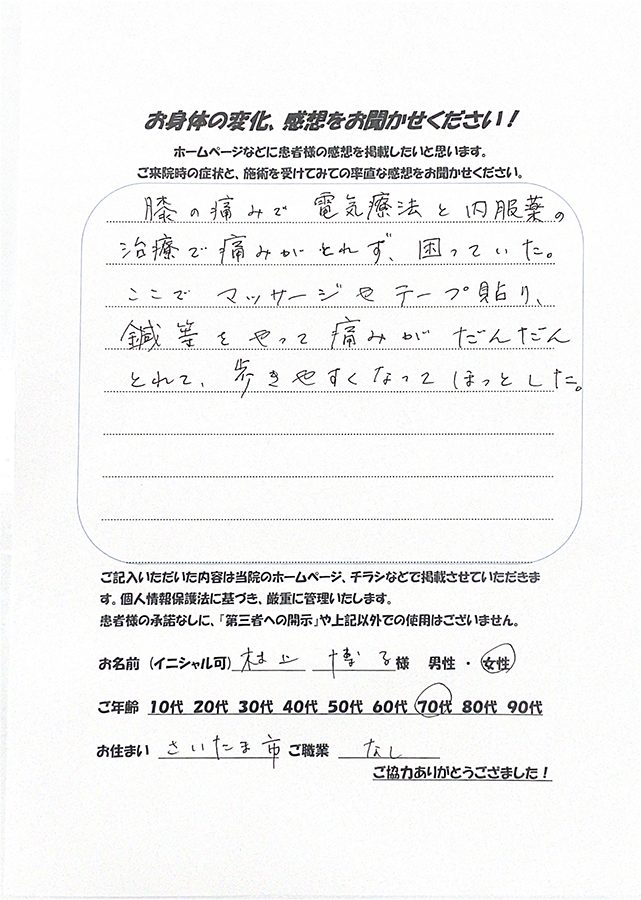 お身体の変化、感想をお聞かせください！
ホームページなどに患者様の感想を掲載したいと思います。
ご来院時の症状と、施術を受けてみての率直な感想をお聞かせください。
膝の痛みで 電気療法と内服薬の
治療で痛みがとれず、困っていた。
ここで マッサージやテープ貼り、
鍼等をやって痛みが だんだん
とれて、歩きやすくなって ほっとした。
ご記入いただいた内容は当院のホームページ、チラシなどで掲載させていただきま
す。個人情報保護法に基づき、厳重に管理いたします。
患者様の承諾なしに、「第三者への開示」や上記以外での使用はございません。
お名前（イニシャル可） 村上 博子 様 男性 ・ 女性
ご年齢 10代 20代 30代 40代 50代 60代 70代 80代 90代
お住まい さいたま市 ご職業 なし
ご協力ありがとうござました！